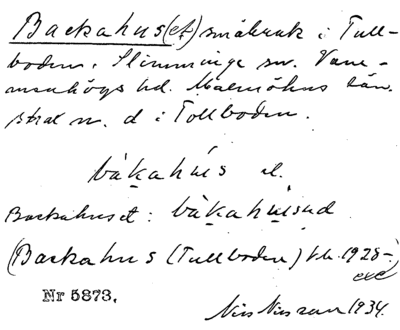 Backahus(et) småbruk i Tull-
boden i Slimminge sn. Vem-
menhögs hd. Malmöhus län.
strax n. d i Tollboden.
bàkahús el.
Backahuset: bàkahúsud
(Backahus (Tullboden) tk. 1928-
Nr 5873.
Nils Nilsson 1934.